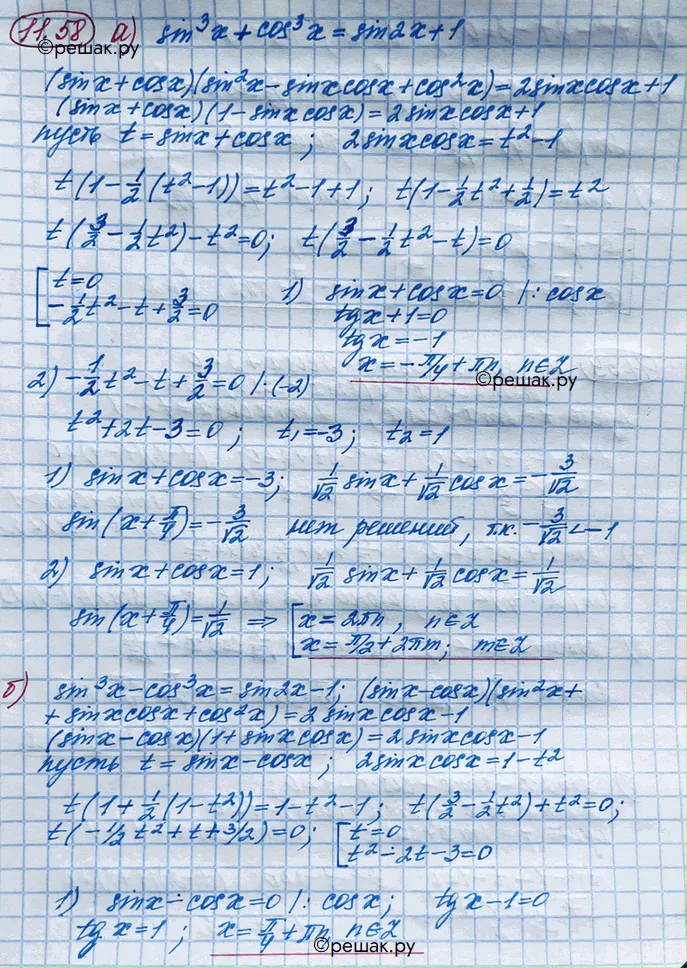 11.58 а) sin³x + cos³x = sin2x + 1
©решак.ру
(sinx + cosx)(sin²x - sinxcosx + cos²x) = 2sinxcosx + 1
(sinx + cosx)(1 - sinxcosx) = 2sinxcosx + 1
пусть t = sinx + cosx ; 2sinxcosx = t² - 1
t(1 - 1/2(t² - 1)) = t² - 1 + 1 ; t(1 - 1/2t² + 1/2) = t²
t(3/2 - 1/2t²) - t² = 0 ; t(3/2 - 1/2t² - t) = 0
[ t = 0
-1/2t² - t + 3/2 = 0
1) sinx + cosx = 0 | : cosx
tgx + 1 = 0
tgx = -1
x = -π/4 + πn, n∈Z
©решак.ру
2) -1/2t² - t + 3/2 = 0 | · (-2)
t² + 2t - 3 = 0 ; t₁ = -3 ; t₂ = 1
1) sinx + cosx = -3 ; 1/√2 sinx + 1/√2 cosx = -3/√2
sin(x + π/4) = -3/√2 нет решений, т.к. -3/√2 < -1
2) sinx + cosx = 1 ; 1/√2 sinx + 1/√2 cosx = 1/√2
sin(x + π/4) = 1/√2 ⇒ [ x = 2πn, n∈Z
x = π/2 + 2πm ; m∈Z
б) sin³x - cos³x = sin2x - 1 ; (sinx - cosx)(sin²x +
+ sinxcosx + cos²x) = 2sinxcosx - 1
(sinx - cosx)(1 + sinxcosx) = 2sinxcosx - 1
пусть t = sinx - cosx ; 2sinxcosx = 1 - t²
t(1 + 1/2(1 - t²)) = 1 - t² - 1 ; t(3/2 - 1/2t²) + t² = 0 ;
t(-1/2t² + t + 3/2) = 0 ; [ t = 0
t² - 2t - 3 = 0
1) sinx - cosx = 0 | : cosx ; tgx - 1 = 0
tgx = 1 ; x = π/4 + πn, n∈Z
©решак.ру